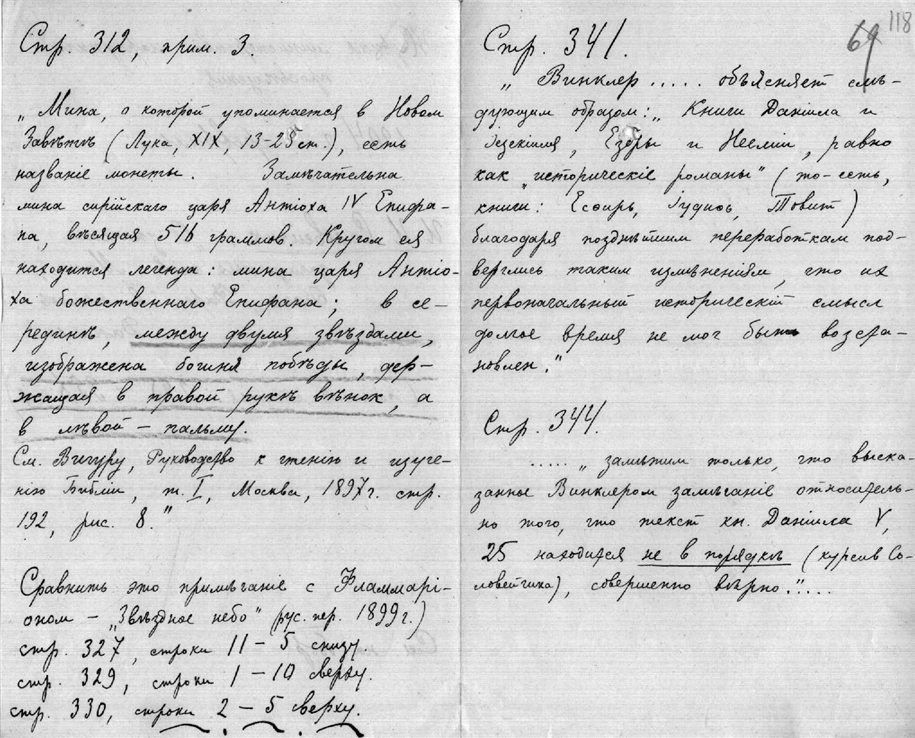 Стр. 312, прим. 3.
„Мина, о которой упоминается в Новом
Завѣтѣ (Лука, XIX, 13-25 ст.), есть
названіе монеты. Замѣчательна
мина сирійскаго царя Антіоха IV Епифа-
на, вѣсящая 516 граммов. Кругом ея
находится легенда: мина царя Антіо-
ха божественнаго Епифана; в се-
рединѣ, между двумя звѣздами,
изображена богиня побѣды, дер-
жащая в правой рукѣ вѣнок, а
в лѣвой – пальму.
См. Вигуру, Руководство к чтенію и изуче-
нію Библіи, т. I, Москва, 1897 г. стр.
192, рис. 8."
Сравнить это примѣчаніе с Фламмарі-
оном – „Звѣздное небо" (рус. пер. 1899 г.)
стр. 327, строки 11 – 5 снизу.
стр. 329, строки 1 – 10 сверху.
стр. 330, строки 2 – 5 сверху.
118
69
Стр. 341.
„Винклер ..... объясняет слѣ-
дующим образом: „Книги Даніила и
Іезекіиля, Ездры и Нееміи, равно
как „историческіе романы" (то-есть,
книги: Есѳирь, Іудиѳь, Товит)
благодаря позднѣйшим переработкам под-
верглись таким измѣненіям, что их
первоначальный историческій смысл
долгое время не мог быть возста-
новлен."
Стр. 344.
..... „замѣтим только, что выска-
занное Винклером замѣчаніе относитель-
но того, что текст кн. Даніила V,
25 находится не в порядкѣ (курсив Со-
ловейчика), совершенно вѣрно".....